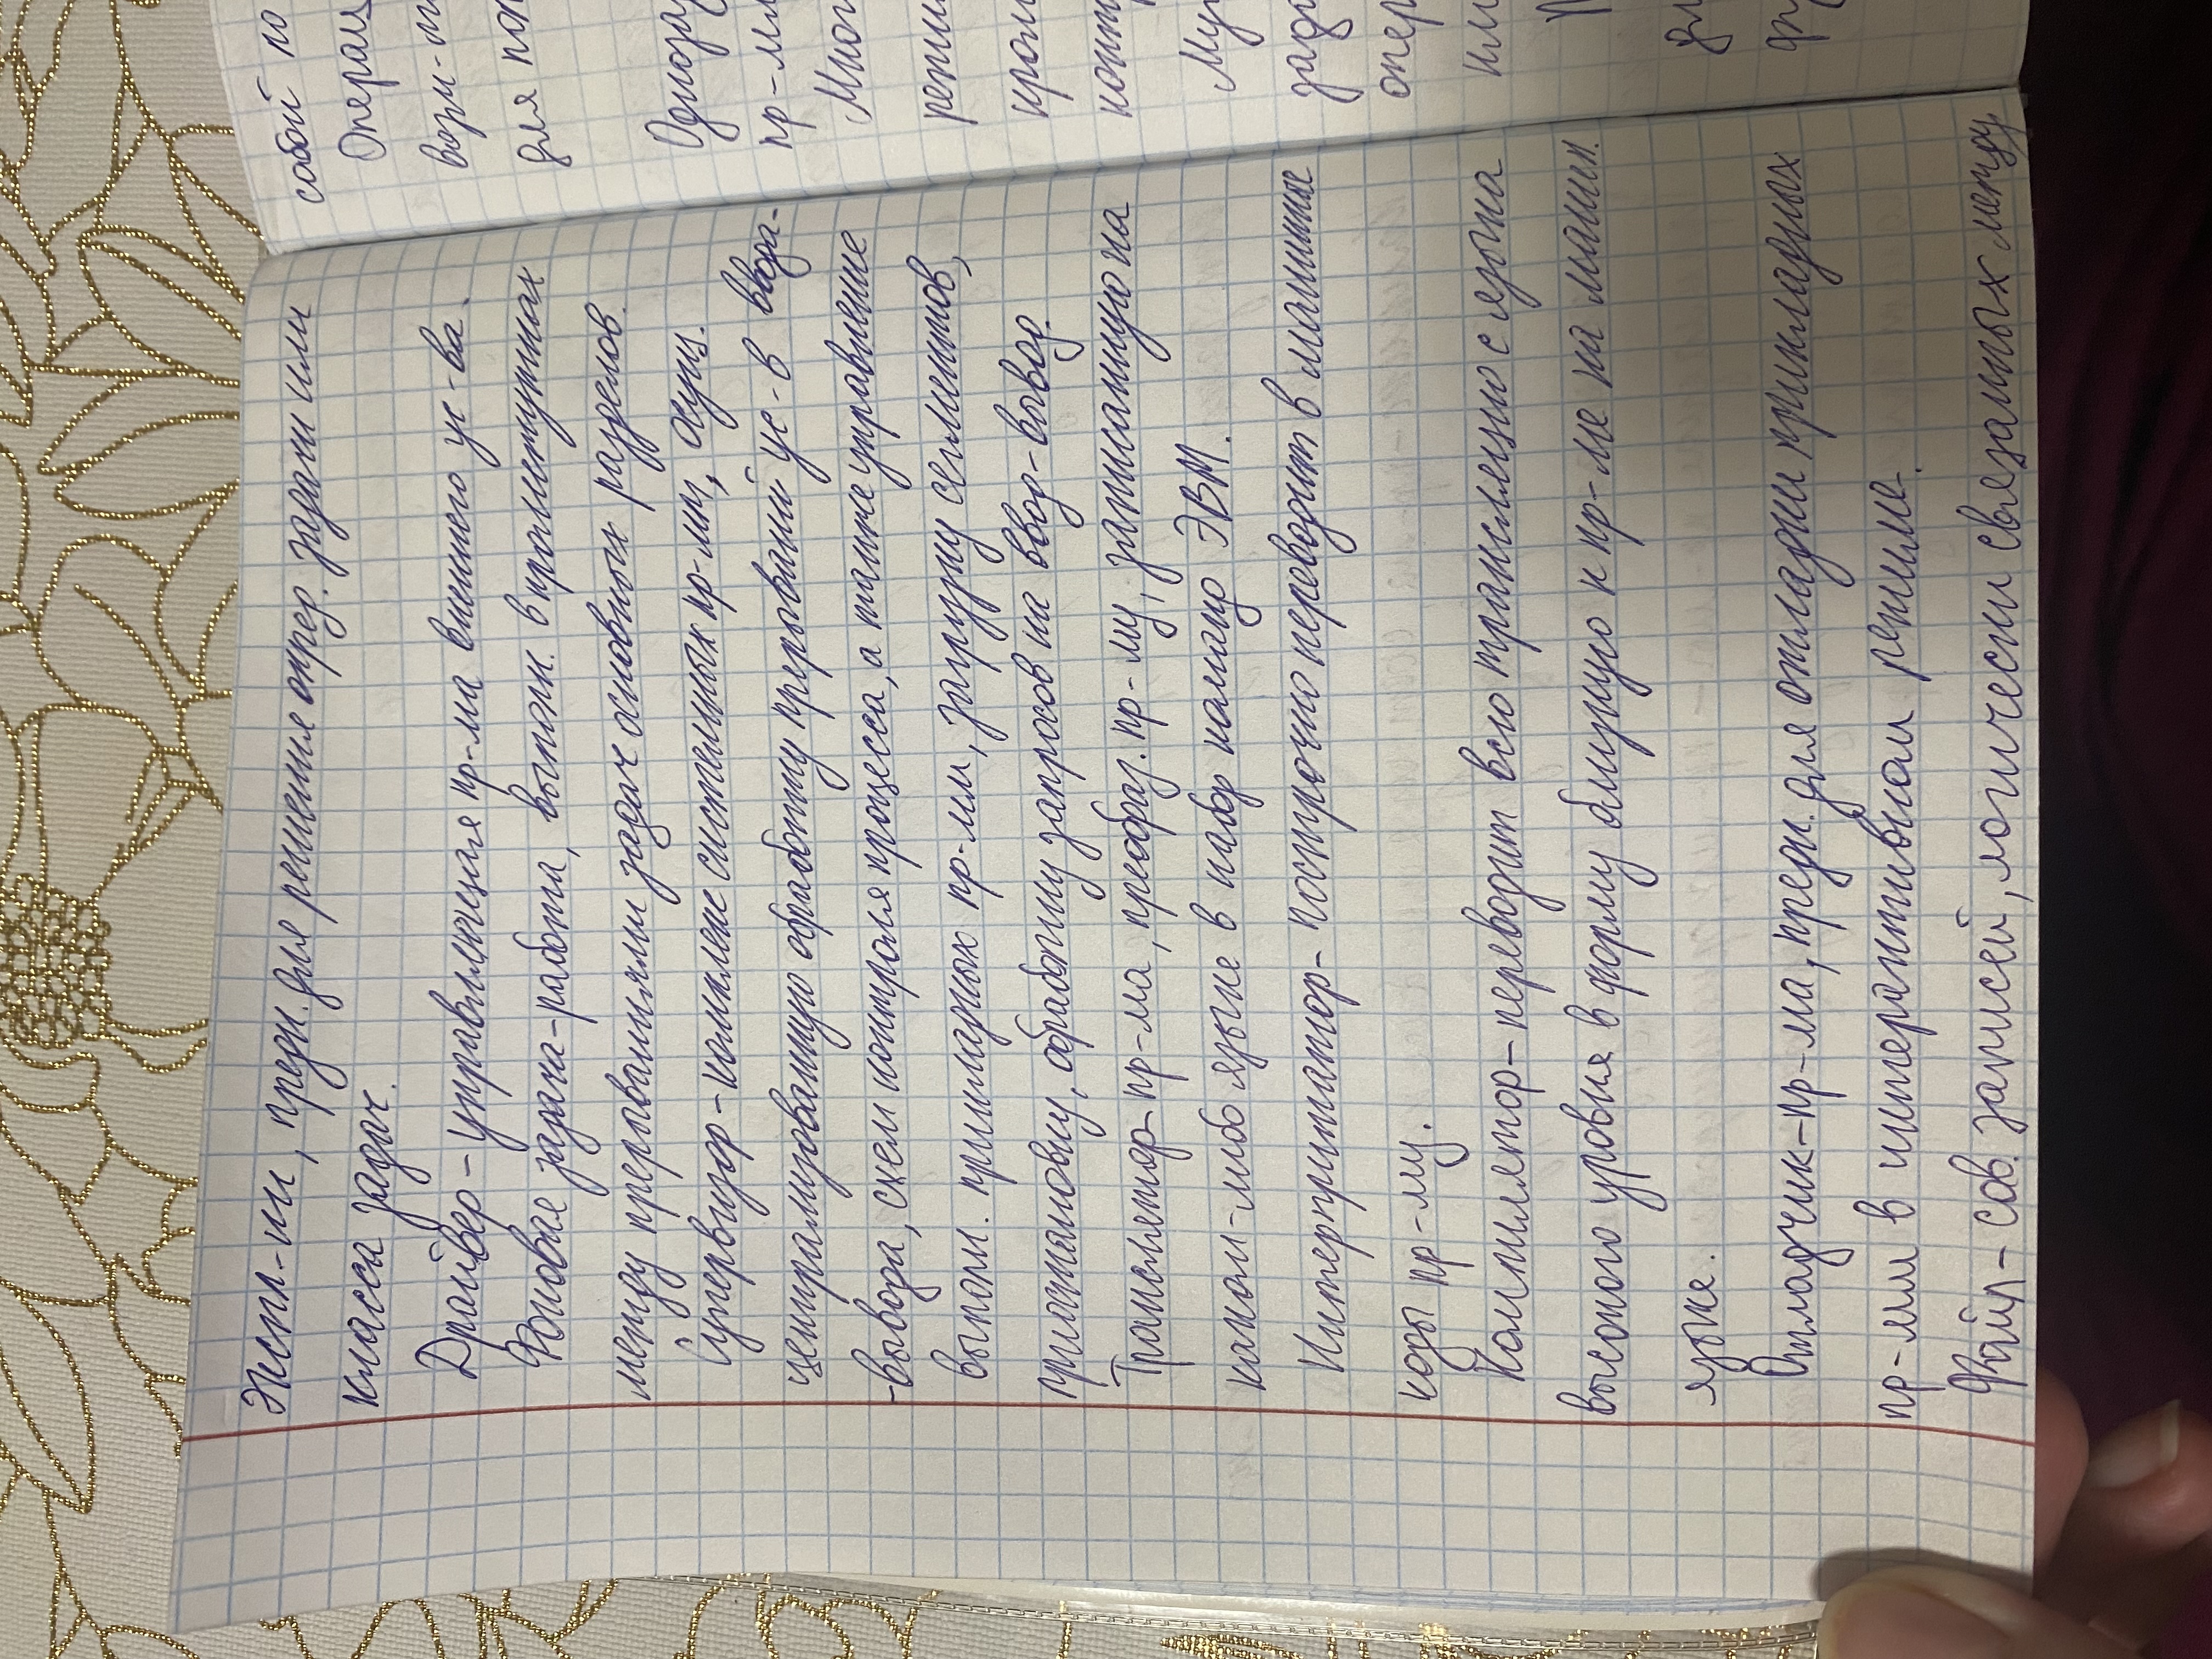 Экспл-ии, предн. для решения опред. задачи или
класса задач.
Драйвер - управляющая пр-ма внешнего ус-ва.
Фоновая задача - работа, выполн. в промежутках
между прерываниями задач основных разделов.
Супервизор - комплекс системных пр-мм, осущ.
централизованную обработку прерываний ус-в ввода-
-вывода, схем контроля процесса, а также управление
выполн. прикладных пр-мм, загрузку сегментов,
приостановку, обработку запросов на ввод-вывод.
Транслятор - пр-ма, преобраз. пр-му, записанную на
каком-либо языке в набор команд ЭВМ.
Интерпритатор - построчно переводит в машинные
коды пр-му.
Компилятор - переводит всю трансляцию с языка
высокого уровня в форму близкую к пр-ме на машин.
языке.
Отладчик - пр-ма, предн. для отладки прикладных
пр-мм в интерактивном режиме.
Файл - сов. записей, логически связанных между
собой по
Операц
вози-
для пол
Однозад
пр-
Мног
режим
пром
конт
Му
задо
опер
или
для